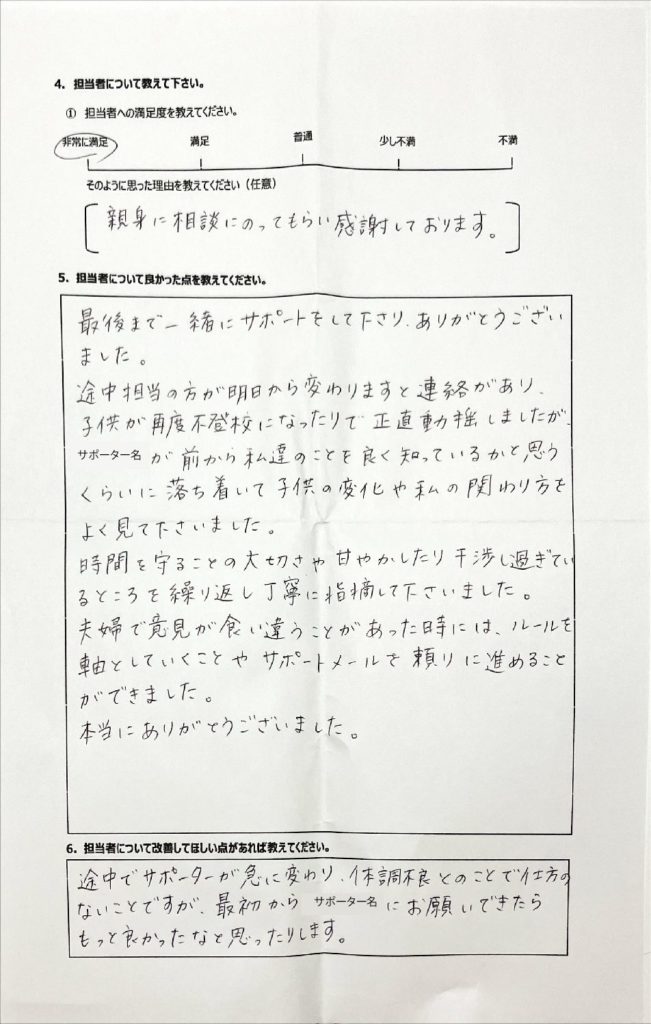 4. 担当者について教えて下さい。
① 担当者への満足度を教えてください。
非常に満足 満足 普通 少し不満 不満
そのように思った理由を教えてください（任意）
親身に相談にのってもらい感謝しております。
5. 担当者について良かった点を教えてください。
最後まで一緒にサポートをして下さり、ありがとうござい
ました。
途中担当の方が明日から変わりますと連絡があり、
子供が再度不登校になったりで正直動揺しましたが、
サポーター名が前から私達のことを良く知っているかと思う
くらいに落ち着いて子供の変化や私の関わり方を
よく見て下さいました。
時間を守ることの大切さや甘やかしたり干渉し過ぎてい
るところを繰り返し丁寧に指摘して下さいました。
夫婦で意見が食い違うことがあった時には、ルールを
軸としていくことやサポートメールを頼りに進めること
ができました。
本当にありがとうございました。
6. 担当者について改善してほしい点があれば教えてください。
途中でサポーターが急に変わり、体調不良とのことで仕方の
ないことですが、最初からサポーター名にお願いできたら
もっと良かったなと思ったりします。